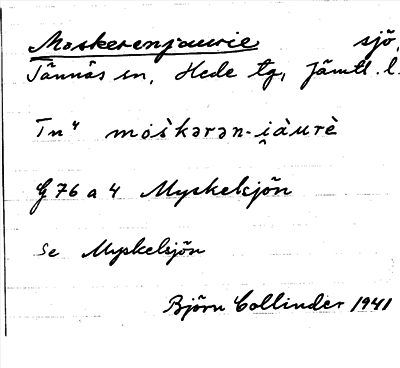 Moskerenjaurie sjö,
Tännäs sn, Hede tg, Jämtl. l.
Tn⁴ mo̍skərən-i̯àurè
G 76 a 4 Myskelsjön
Se Myskelsjön
Björn Collinder 1941